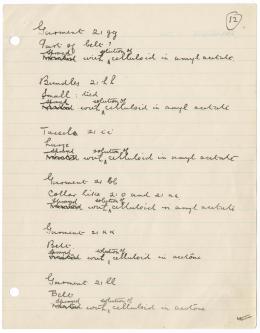 12
Garment 21 gg
Part of belt?
Sprayed solution of
Treated with celluloid in amyl acetate.
Bundles 21 hh
Small: tied
Sprayed solution of
Treated with celluloid in amyl acetate
Tassels 21 ii
Large
Sprayed solution of
Treated with celluloid in amyl acetate
Garment 21 bb
Collar like 21 and 21
Sprayed solution of
Treated with celluloid in amyl acetate
Garment 21 kk
Belt.
Sprayed solution of
Treated with celluloid in acetone
Garment 21 ll
Belt
Sprayed solution of
Treated with celluloid in acetone